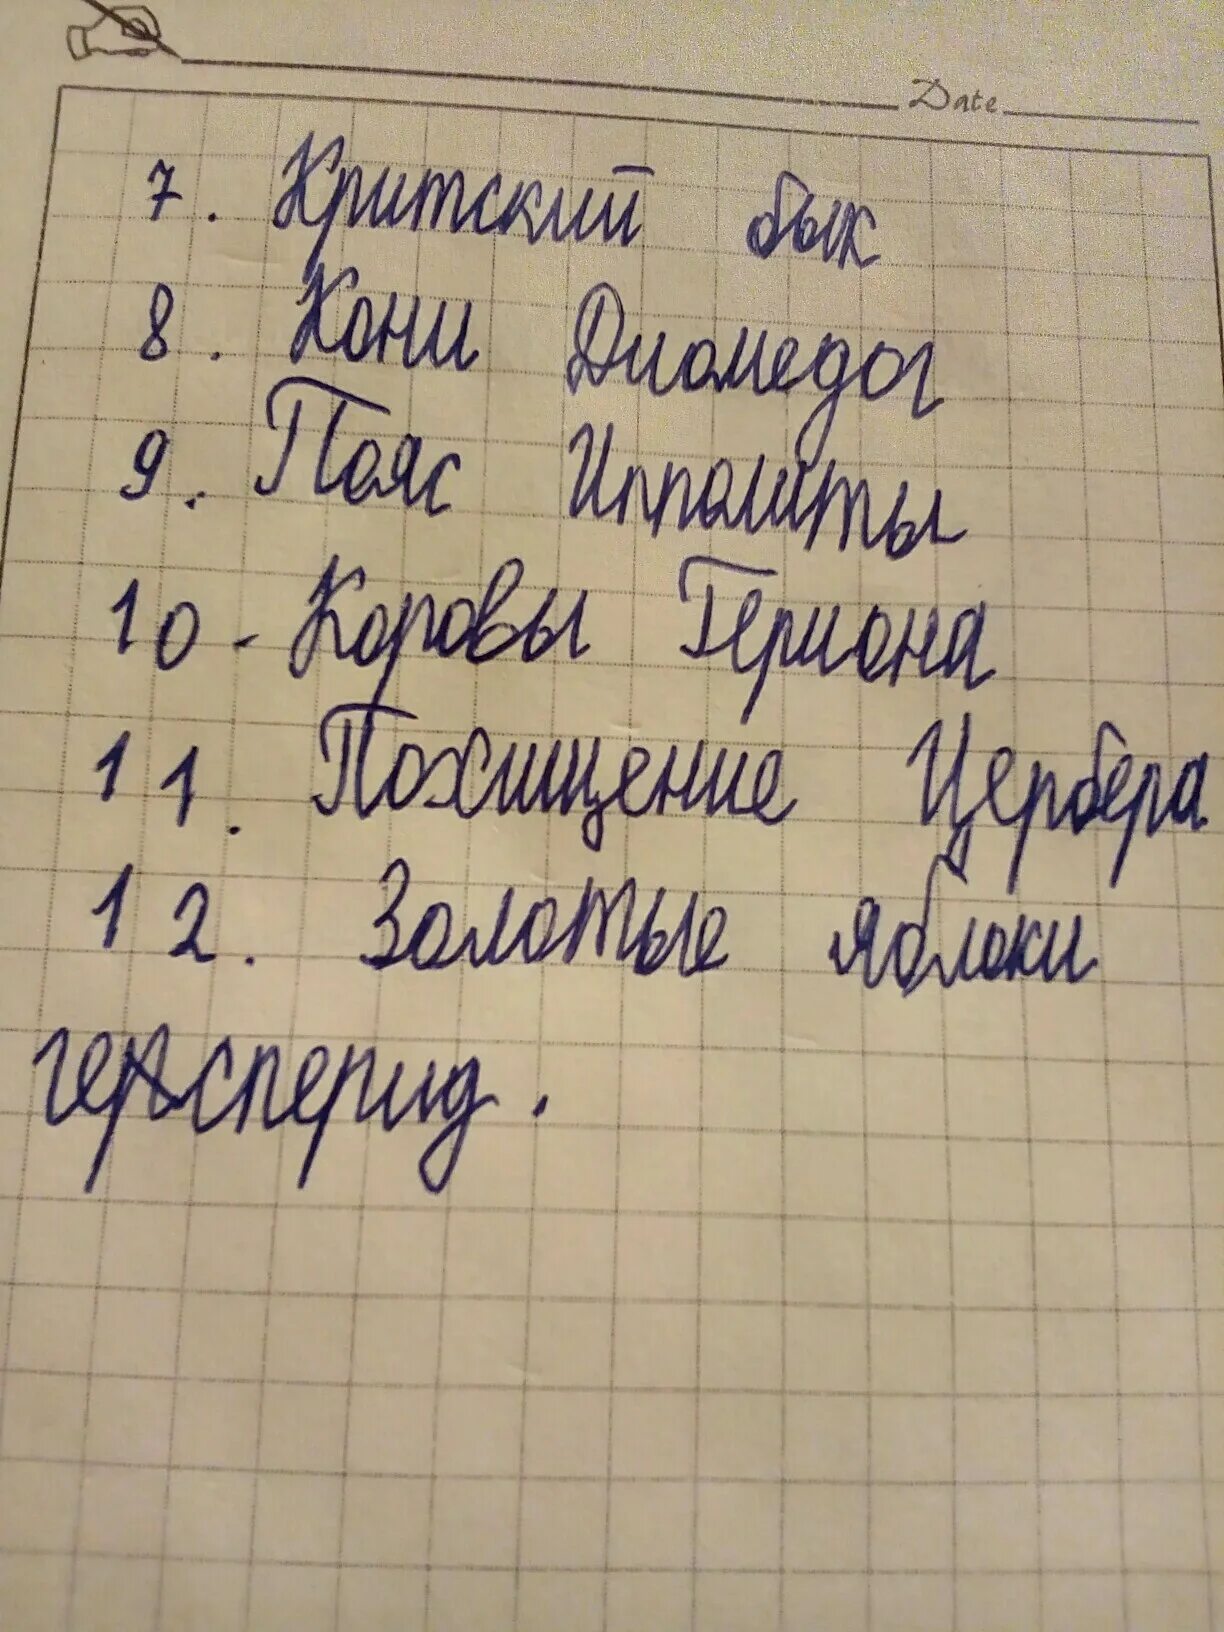 Date
7. Критский бык
8. Кони Диомедог
9. Пояс Ипполиты
10 - Коровы Гериона
11. Похищение Цербера
12. Золотые яблоки
гесперид.